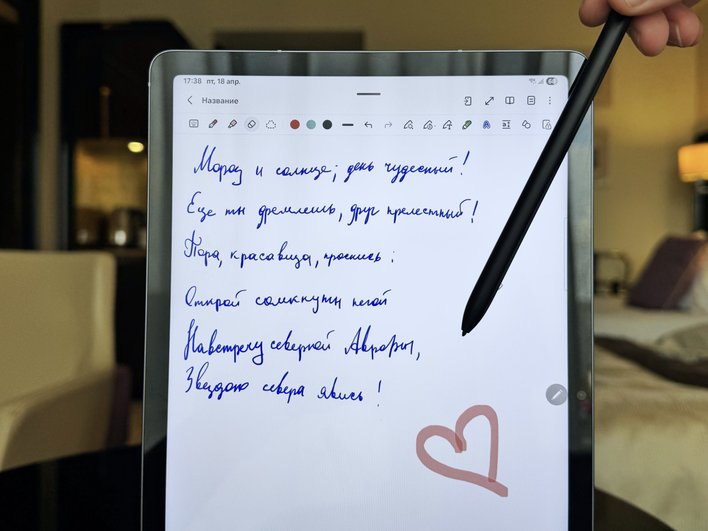 17:38 пт, 18 апр.
Название
Мороз и солнце; день чудесный!
Еще ты дремлешь, друг прелестный!
Пора, красавица, проснись:
Открой сомкнуты негой
Навстречу северной Авроры,
Звездою севера явись!